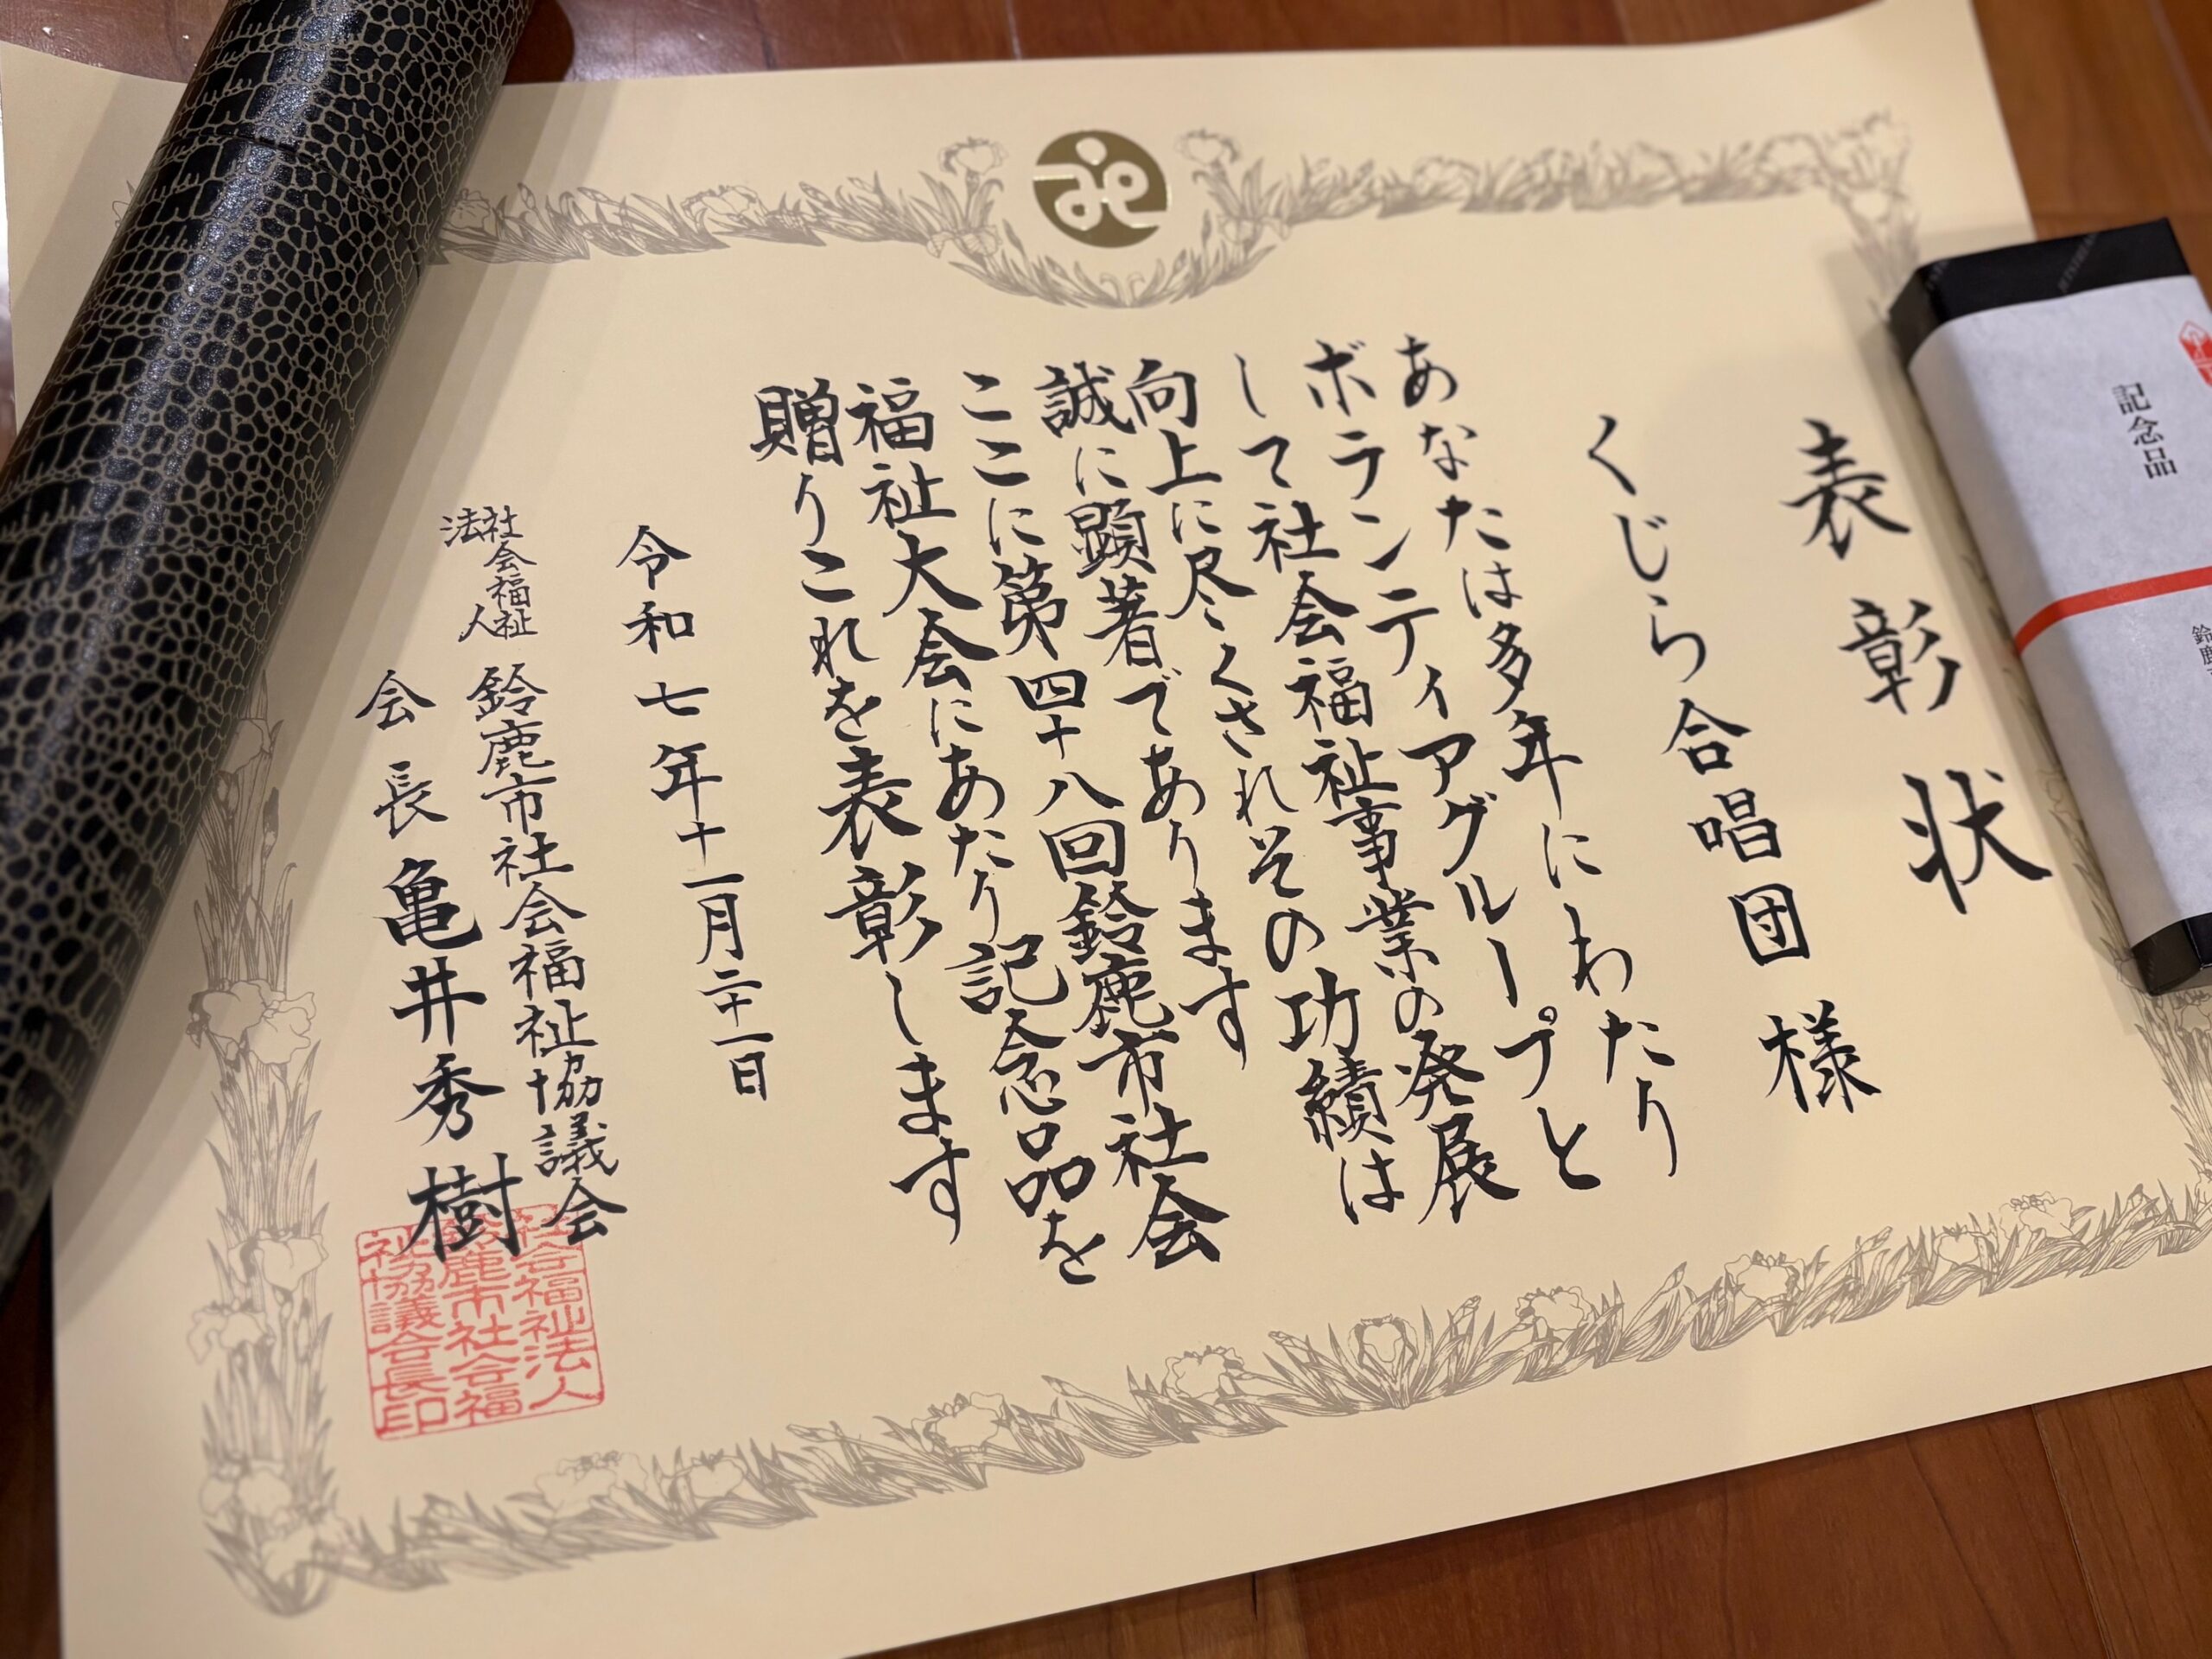 表彰状
くじら合唱団様
あなたは多年にわたり
ボランティアグループと
して社会福祉事業の発展
向上に尽くされその功績は
誠に顕著であります
ここに第四十八回鈴鹿市社会
福祉大会にあたり記念品を
贈りこれを表彰します
令和七年十一月二十一日
社会福祉法人
鈴鹿市社会福祉協議会
会長 亀井秀樹
社会福祉法人
鈴鹿市社会福
祉協議会長印
記念品
鈴鹿